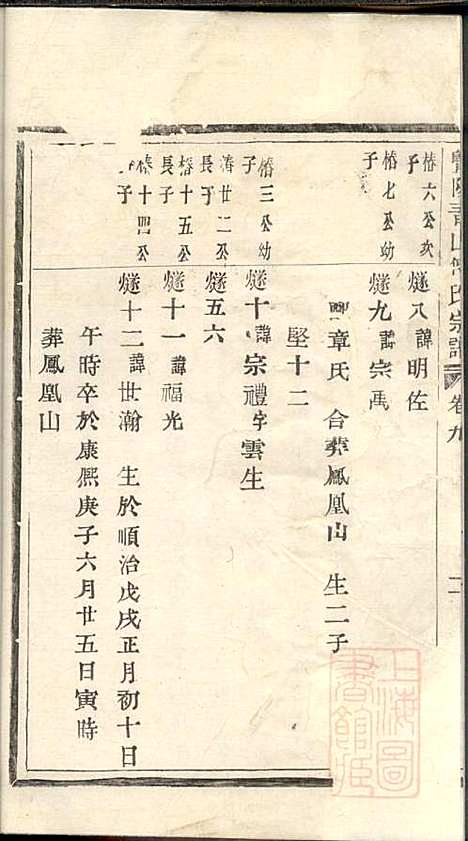 青山傅氏宗譜 卷九 二
椿六公次子 燧八諱明佐
椿七公幼子 燧九諱宗禹
聘章氏 合葬鳳凰山 生二子
堅十二
椿三公幼子 燧十諱宗禮字雲生
椿廿二公長子 燧五六
椿十五公長子 燧十一諱福光
椿十四公子 燧十二諱世瀚 生於順治戊戌正月初十日
午時卒於康熙庚子六月廿五日寅時
葬鳳凰山
上海圖書館藏